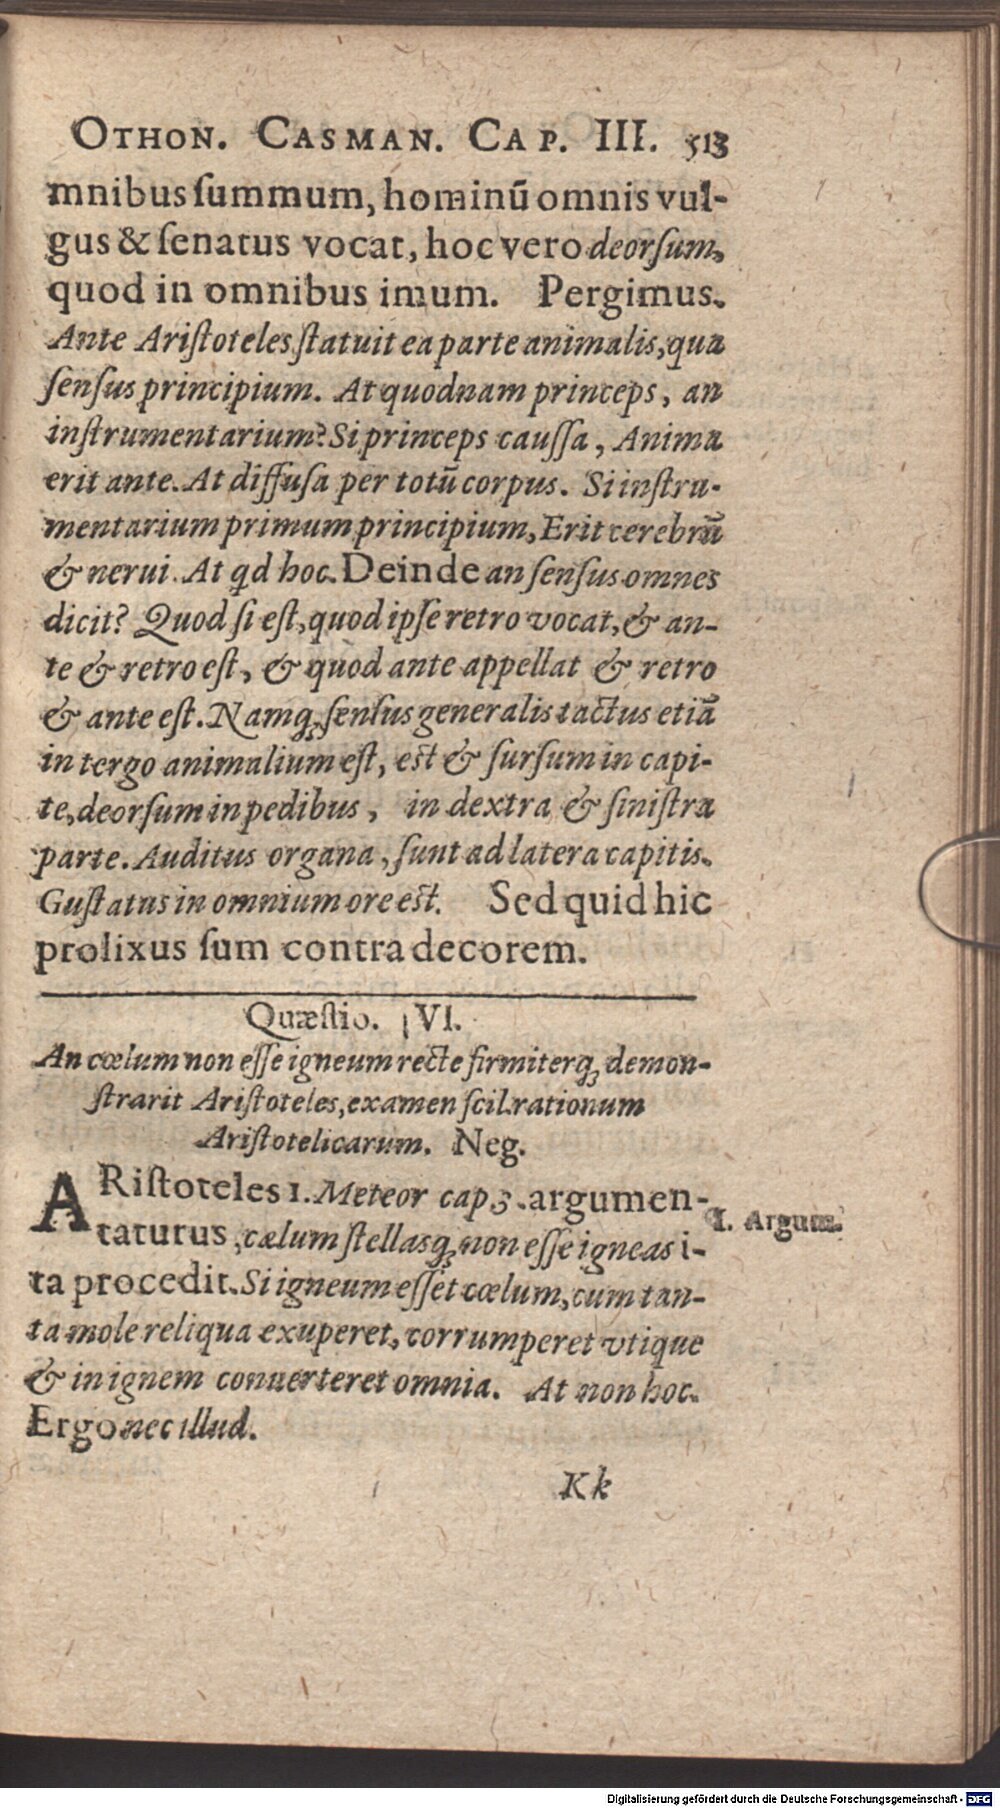 OTHON. CASMAN. CAP. III. 513
mnibus ſummum, hominū omnis vul-
gus & ſenatus vocat, hoc vero deorſum,
quod in omnibus imum. Pergimus.
Ante Ariſtoteles ſtatuit ea parte animalis, qua
ſenſus principium. At quodnam princeps, an
inſtrumentarium? Si princeps cauſſa, Anima
erit ante. At diffuſa per totū corpus. Si inſtru-
mentarium primum principium, Erit cerebrū
& nerui. At qd hoc. Deinde an ſenſus omnes
dicit? Quod ſi eſt, quod ipſe retro vocat, & an-
te & retro eſt, & quod ante appellat & retro
& ante eſt. Namq; ſenſus generalis tactus etiā
in tergo animalium eſt, eſt & ſurſum in capi-
te, deorſum in pedibus, in dextra & ſiniſtra
parte. Auditus organa, ſunt ad latera capitis.
Guſtatus in omnium ore eſt. Sed quid hic
prolixus ſum contra decorem.
Quæſtio. VI.
An cœlum non eſſe igneum recte firmiterq; demon-
ſtrarit Ariſtoteles, examen ſcil. rationum
Ariſtotelicarum. Neg.
ARiſtoteles 1. Meteor cap 3. argumen-
taturus, cælum ſtellasq; non eſſe igneas i-
ta procedit. Si igneum eſſet cœlum, cum tan-
ta mole reliqua exuperet, corrumperet vtique
& in ignem conuerteret omnia. At non hoc.
Ergo nec illud.
I. Argum.
Kk
Digitalisierung gefördert durch die Deutsche Forschungsgemeinschaft - DFG